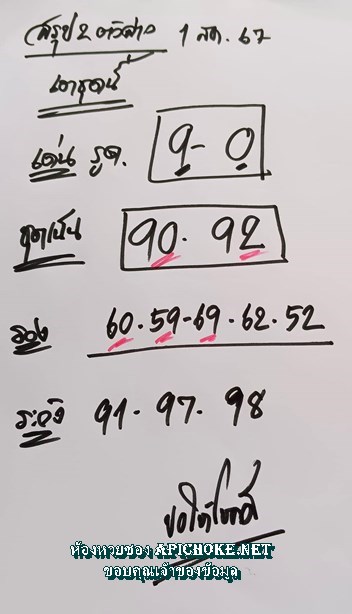 สรุป 2 ตัวล่าง 1 สค. 67
เดาสุดน์
เด่น รูด. 9 - 0
ชุดเน้น 90. 92
รอง 60. 59 - 69. 62. 52
ระวัง 91. 97. 98
ขอให้โชคดี
ห้องหวยซอง APICHOKE.NET
ขอบคุณเจ้าของข้อมูล